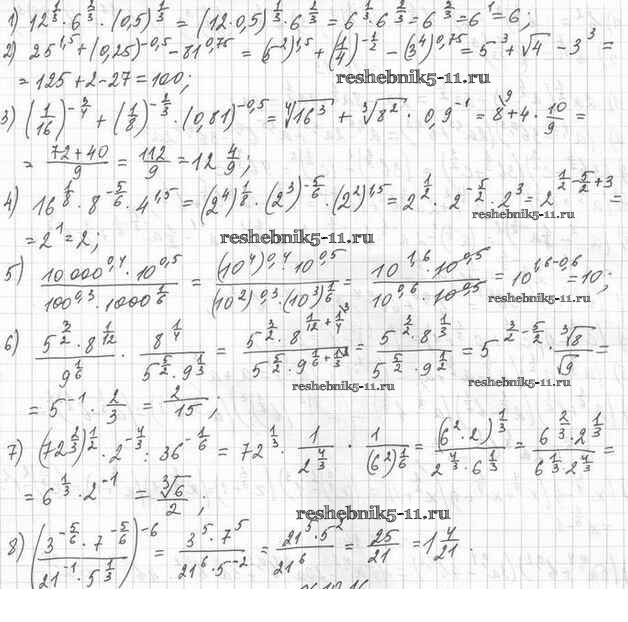 1) 12^(1/3) · 6^(2/3) · (0,5)^(1/3) = (12·0,5)^(1/3) · 6^(2/3) = 6^(1/3) · 6^(2/3) = 6^(3/3) = 6^1 = 6;
2) 25^(1,5) + (0,25)^(-0,5) - 81^(0,75) = (5^2)^(1,5) + (1/4)^(-1/2) - (3^4)^(0,75) = 5^3 + √4 - 3^3 =
= 125 + 2 - 27 = 100;
reshebnik5-11.ru
3) (1/16)^(-3/4) + (1/8)^(-2/3) · (0,81)^(-0,5) = ⁴√16^3 + ³√8^2 · 0,9^(-1) = 8^(\9) + 4 · 10/9 =
= (72+40)/9 = 112/9 = 12 4/9;
4) 16^(1/8) · 8^(-5/6) · 4^(1,5) = (2^4)^(1/8) · (2^3)^(-5/6) · (2^2)^(1,5) = 2^(1/2) · 2^(-5/2) · 2^3 = 2^(1/2-5/2+3) =
reshebnik5-11.ru
= 2^1 = 2;
reshebnik5-11.ru
5) (10000^(0,4) · 10^(0,5))/(100^(0,3) · 1000^(1/6)) = ((10^4)^(0,4) · 10^(0,5))/((10^2)^(0,3) · (10^3)^(1/6)) = (10^(1,6) · 10^(0,5))/(10^(0,6) · 10^(0,5)) = 10^(1,6-0,6) = 10;
reshebnik5-11.ru
6) (5^(3/2) · 8^(1/12))/9^(1/6) · 8^(1/4)/(5^(5/2) · 9^(1/3)) = (5^(3/2) · 8^(1/12+1/4\3))/(5^(5/2) · 9^(1/6+1/3)) = (5^(3/2) · 8^(1/3))/(5^(5/2) · 9^(1/2)) = 5^(3/2-5/2) · ³√8/√9 =
reshebnik5-11.ru
reshebnik5-11.ru
= 5^(-1) · 2/3 = 2/15;
7) (72^(2/3))^(1/2) · 2^(-4/3) : 36^(-1/6) = 72^(1/3) · 1/2^(4/3) · 1/(6^2)^(1/6) = (6^2·2)^(1/3)/(2^(4/3) · 6^(1/3)) = (6^(2/3) · 2^(1/3))/(6^(1/3) · 2^(4/3)) =
= 6^(1/3) · 2^(-1) = ³√6/2;
reshebnik5-11.ru
8) ((3^(-5/6) · 7^(-5/6))/(21^(-1) · 5^(1/3)))^(-6) = (3^5 · 7^5)/(21^6 · 5^(-2)) = (21^5 · 5^2)/21^6 = 25/21 = 1 4/21.